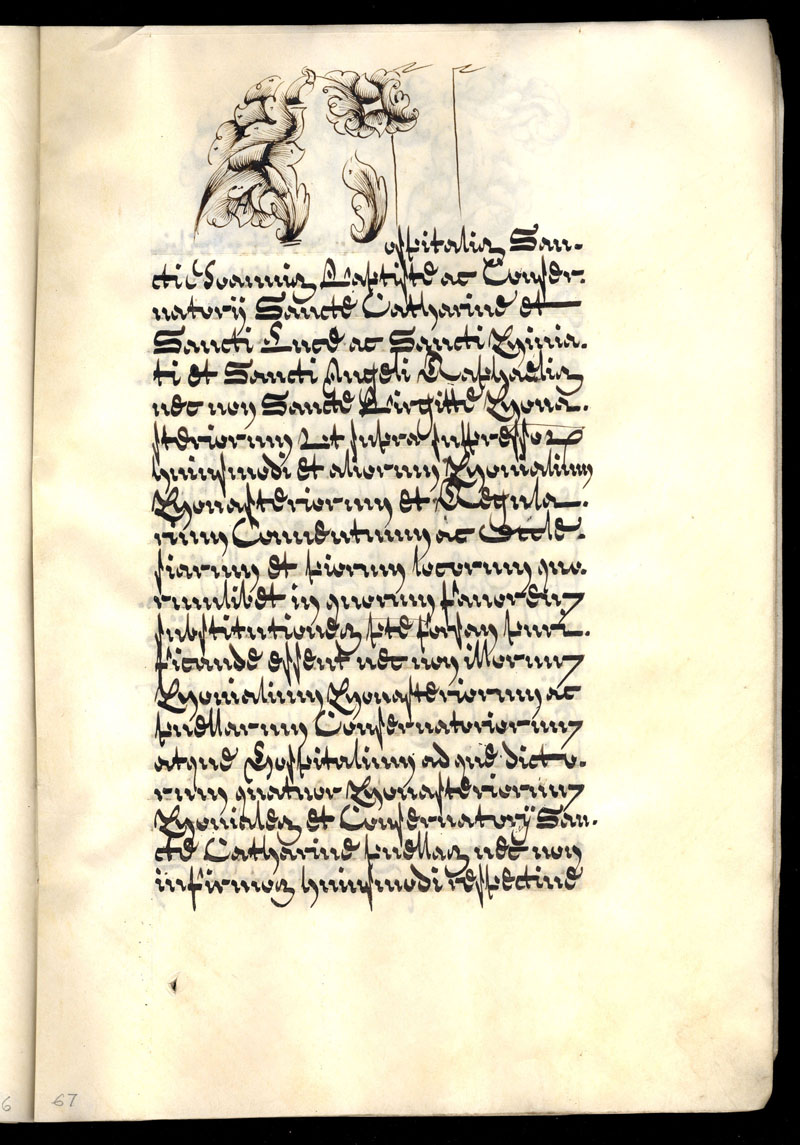 Hospitalis San-
cti Joannis Baptiste ac Conser-
vatorij Sancte Catharine et
Sancti Luce ac Sancti Minia-
ti et Sancti Angeli Raphaelis
nec non Sancte Birgitte Mona-
steriorum ut supra suppressor
huiusmodi et aliorum Monialium
Monasteriorum et Regula-
rium Conventuum ac Eccle-
siarum et piorum locorum quo-
rumlibet in quorum favorem
substitutiones pte forsan puri-
ficande essent nec non illorum
Monialium Monasteriorum ac
puellarum Conservatoriorum
atque Hospitalium ad que dicto-
rum quatuor Monasteriorum
Moniales et Conservatorij San-
cte Catharine puellas nec non
infirmos huiusmodi respective
67
6